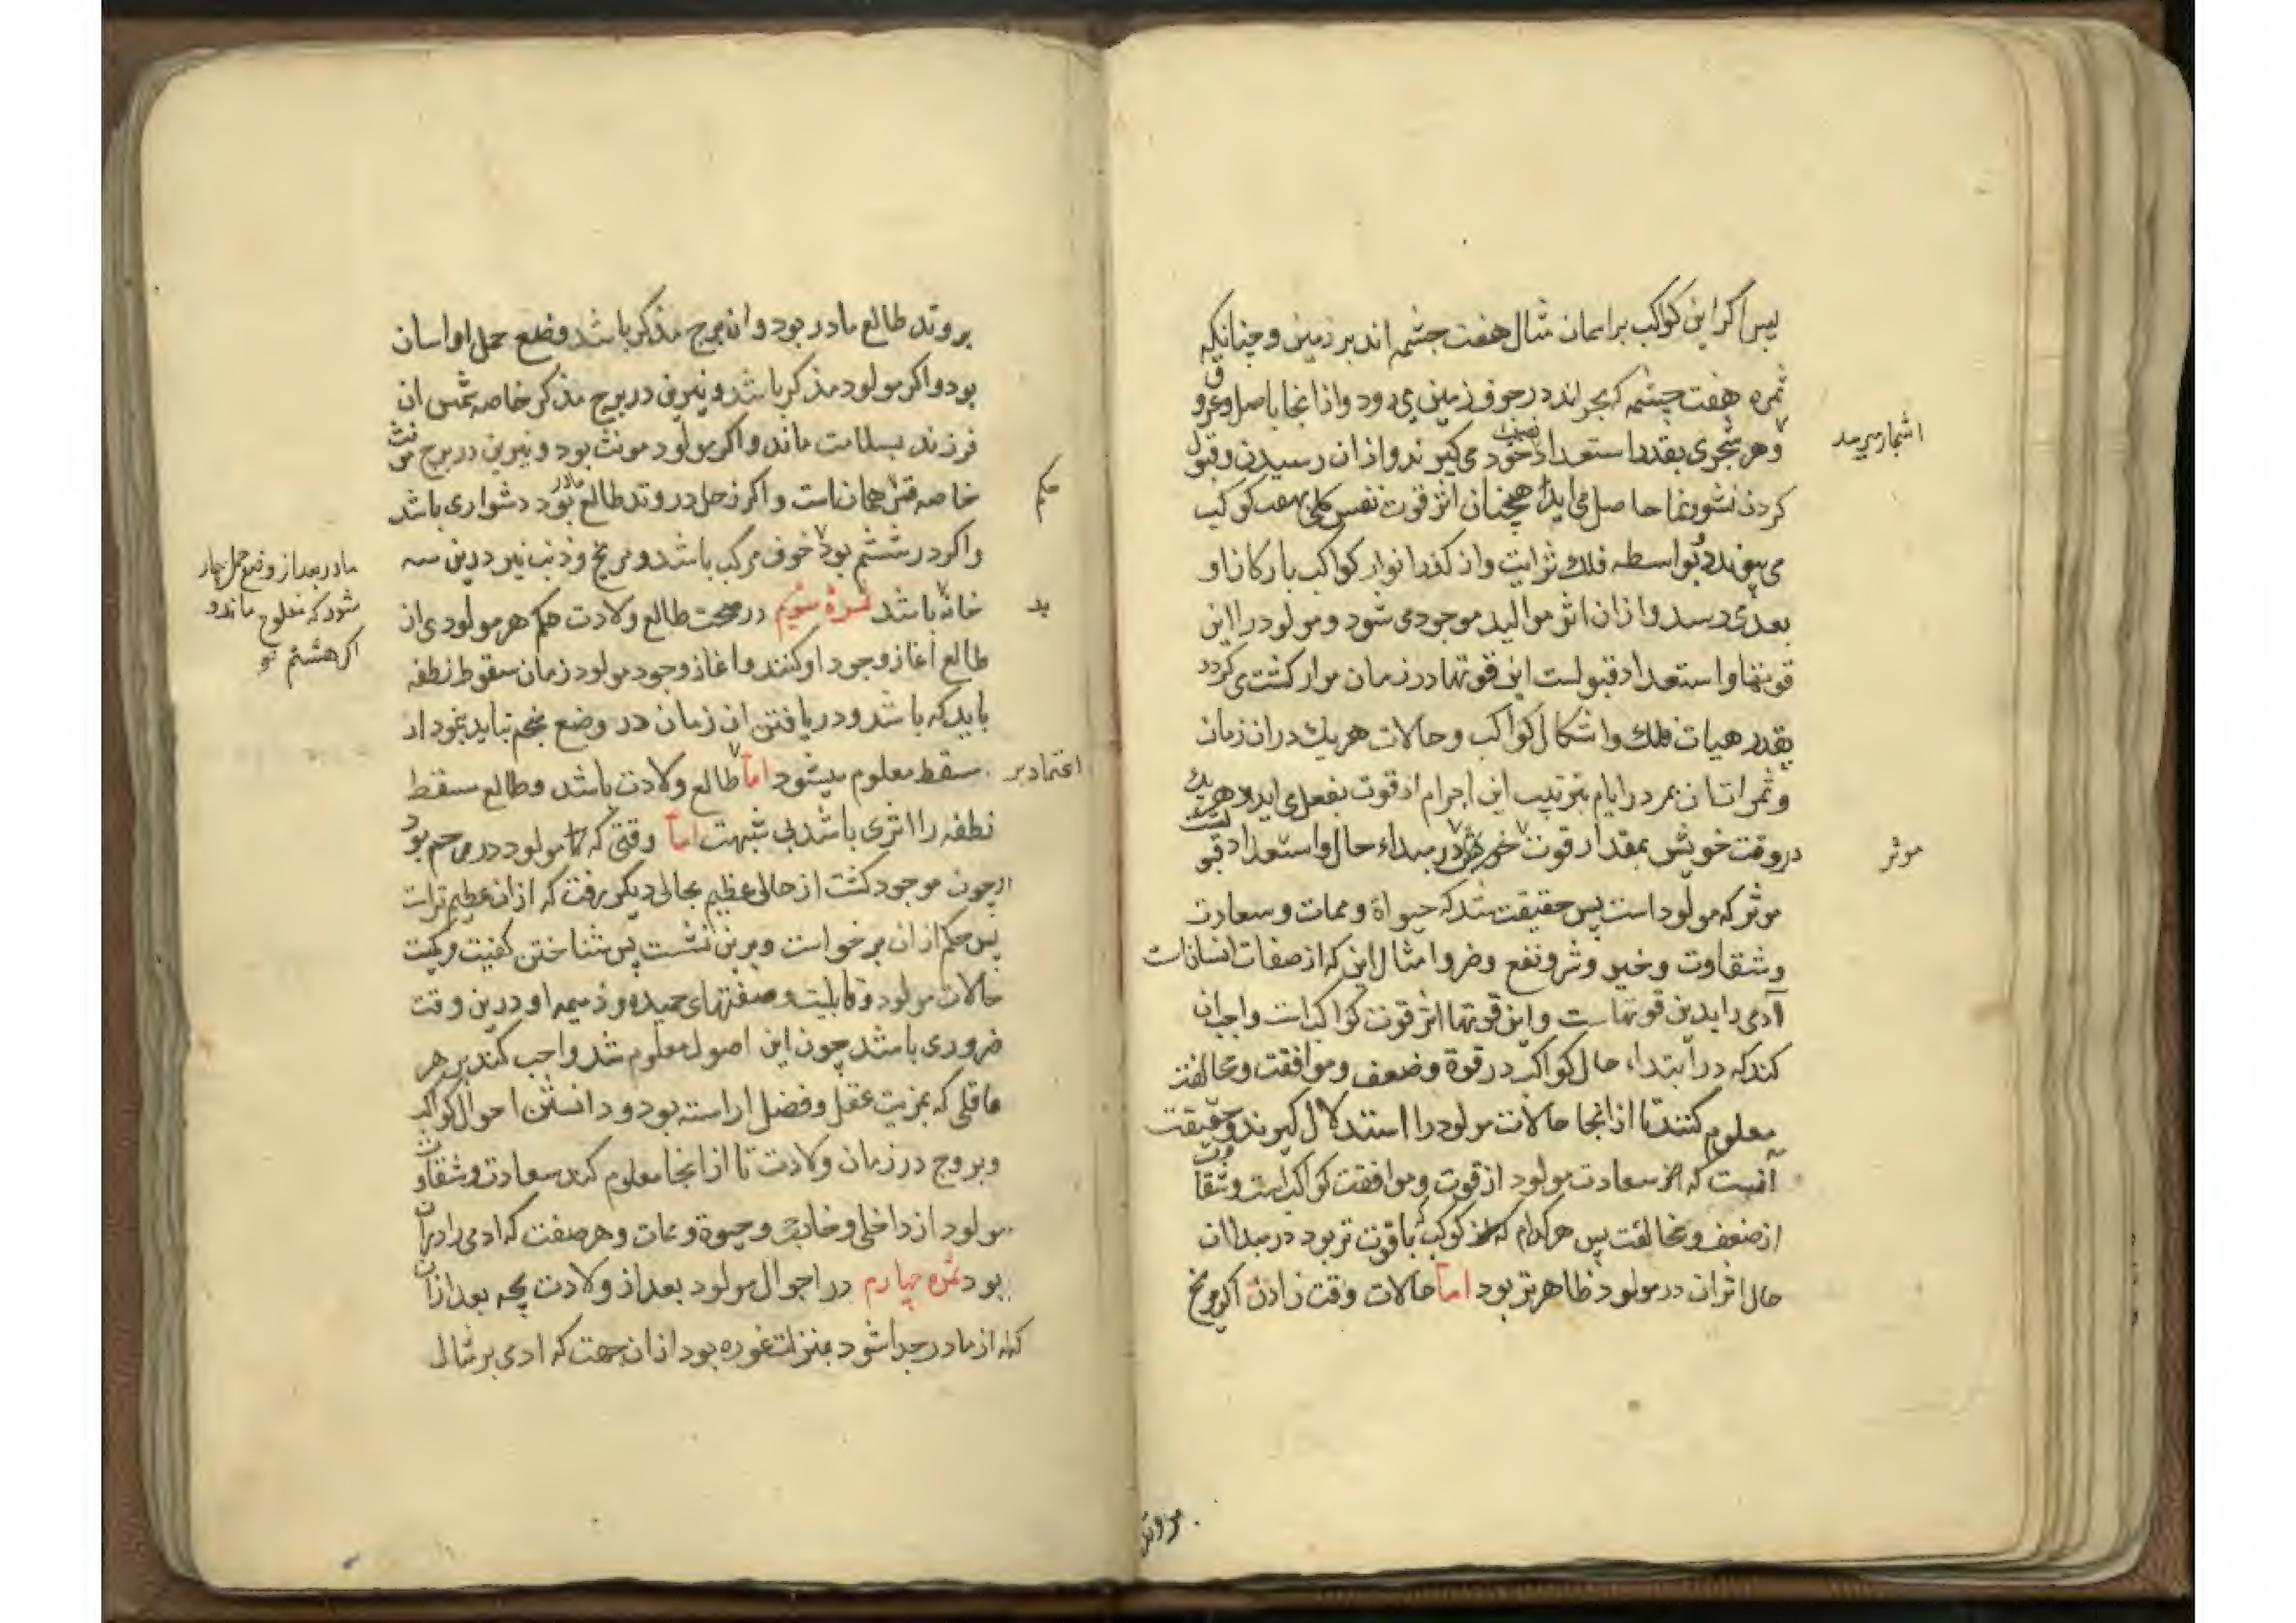 پس اکر این کواکب براسمان مثال هفت چشمه اند بر زمین و چنانکه
ثمره هفت چشمه که بحر اند در جوف زمین می رود و از انجا باصل و عروق
اشجار میرسد
و هر شجری بقدر استعداد خود نصیب می کیرند و از ان رسیدن و قبول
کردن نشو و نما حاصل می اید همچنان اثر قوت نفس کلی بهفت کوکب
می پیوندد بواسطه فلک ثوابت و از کذر انوار کواکب بارکان او
بعدی رسد و از ان اثر موالید موجود می شود و مولود را این
قوتها و استعداد قبولست این قوتها در زمان مرار کشت می کردد
بقدر هیات فلک و اشکال کواکب و حالات هر یک در ان زمان
و ثمرات ان بمرور ایام بترتیب این اجرام از قوت بفعل می اید و هر یک
در وقت خویش بمقدار قوت در مبداء حال و استعداد قبولیت
موثر
موثر که مولود است پس حقیقت شد که حیواة و ممات و سعادت
و شقاوت و خیر و شر و نفع و ضر و امثال این که از صفات انسان است
آدمی را بدین قوتهاست و این قوتها اثر قوت کواکب است واجب ان
کند که در ابتداء حال کواکب در قوة و ضعف و موافقت و مخالفت
معلوم کنند تا از انجا حالات مولود را استدلال کیرند و حقیقت
آنست که سعادت مولود از قوت و موافقت کواکب است و شقاوت
از ضعف و مخالفت پس هر کدام کوکب که باقوت تر بود در مبدا ان
حال اثر ان در مولود ظاهرتر بود اما حالات وقت زادن اکر مریخ
بر وتد طالع مادر بود و ان برج مذکر باشد وضع حمل او اسان
بود و اکر مولود مذکر باشد و نیرین در برج مذکر خاصه شمس ان
فرزند بسلامت ماند و اکر مولود مونث بود و نیرین در برج مونث
خاصه قمر همان است و اکر زحل در وتد طالع مادر بود دشواری باشد
حکم
و اکر در ششم بود خوف مرک باشد و مریخ و ذنب نیز درین سه
مادر بعد از وضع حمل بیمار
شود که مفلوج ماند و
اکر هشتم بو
خانه بد باشد ثمرهٔ سویم در صحت طالع ولادت حکم هر مولودی از
طالع آغاز وجود او کنند و اغاز وجود مولود زمان سقوط نطفه
باید که باشد و دریافتن ان زمان در وضع منجم نباید بخود از
سقط معلوم میشود اما اعتماد بر طالع ولادت باشد و طالع سقط
نطفه را اثری باشد بی شبهت اما وقتی که مولود در رحم بود
چون موجود کشت از حالی عظیم بحالی دیکر رفت که از ان عظیم تر است
پس حکم از ان برخواست و برین نشست پس شناختن کیفیت و کمیت
حالات مولود و قابلیت و صفتهای حمیده و ذمیمه او درین وقت
ضروری باشد چون این اصول معلوم شد واجب کند بر هر
عاقلی که بمزیت عقل و فضل اراسته بود و دانستن احوال کواکب
و بروج در زمان ولادت تا از انجا معلوم کند سعادت و شقاوت
مولود از داخلی و خارجی و حیوة و ممات و هر صفت که ادمی را در ان
بود ثمره چهارم در احوال مولود بعد از ولادت بچه بعد از ان
که از مادر جدا شود بمنزلت غوره بود از ان جهت که ادمی بر مثال
بر وتد